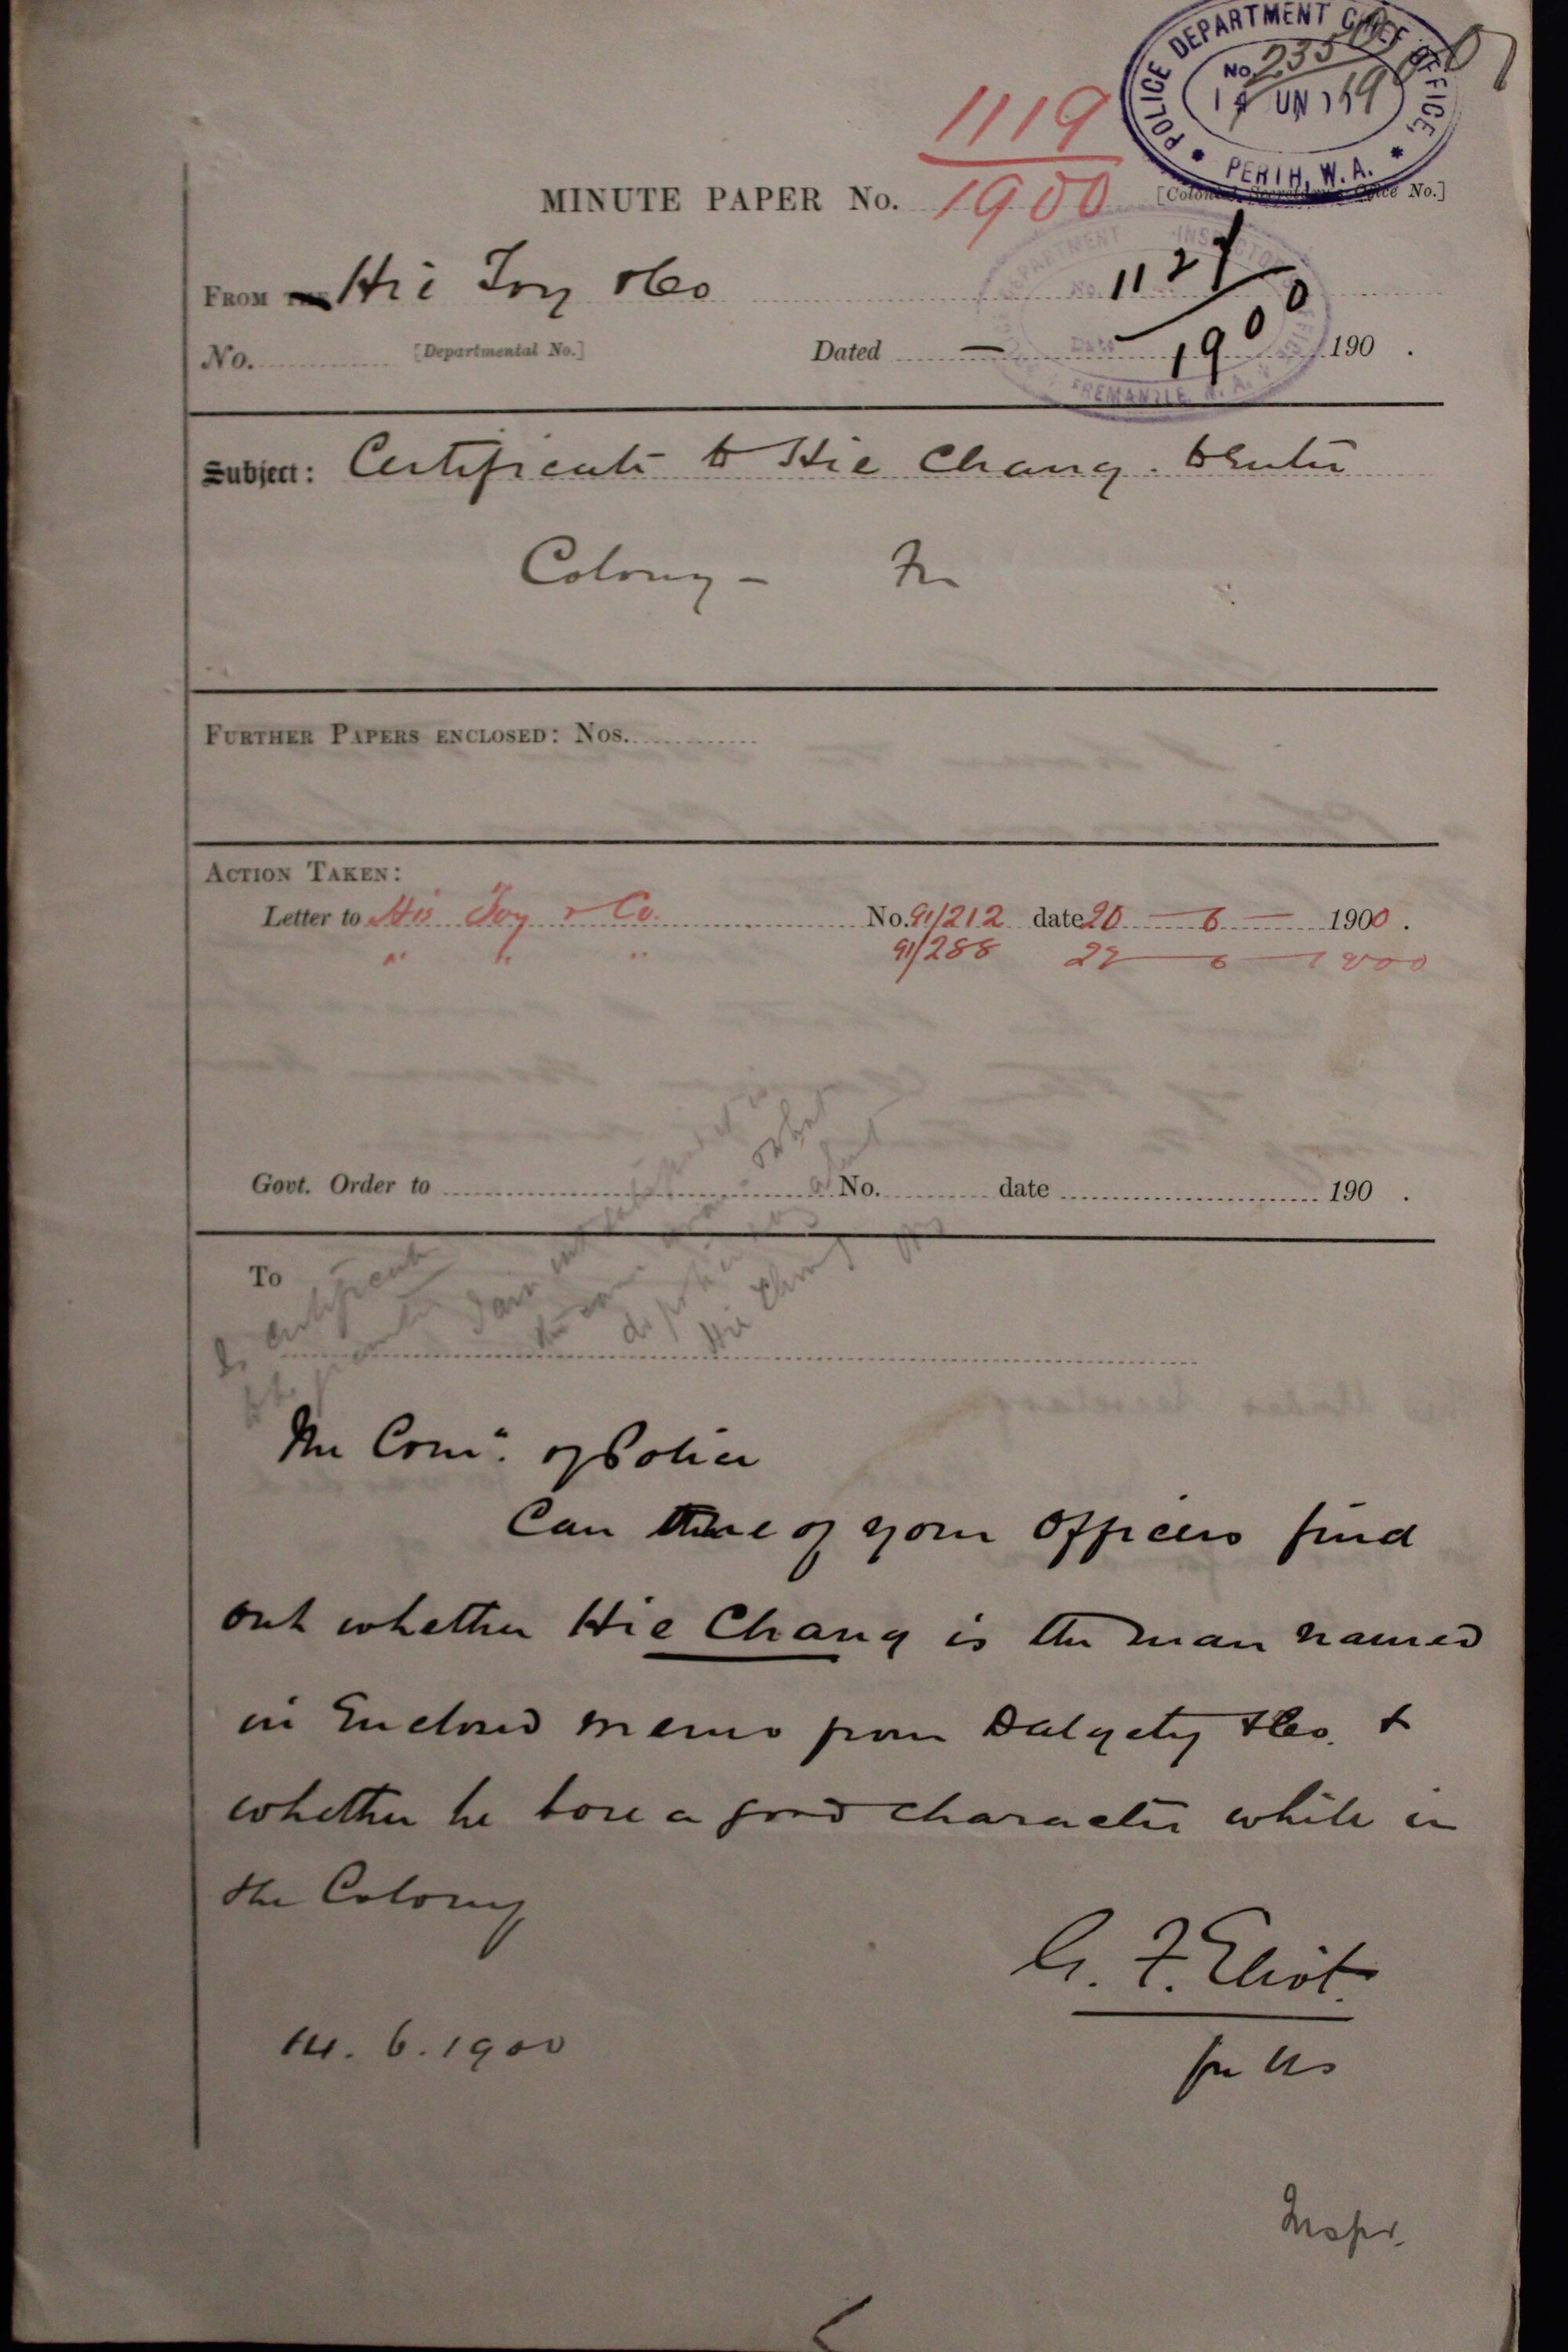 POLICE DEPARTMENT CHIEF OFFICE,
No. 235
PERTH, W.A.
1119
MINUTE PAPER No. 1900
[Colonial Secretary's Office No.]
DEPARTMENT INSPECTOR
1127
FROM THE Hie Joy & Co
1900
No. [Departmental No.] Dated — 190 .
FREMANTLE. W. A.
Subject: Certificate to Hie Chang. to Enter
Colony –
FURTHER PAPERS ENCLOSED: Nos.
ACTION TAKEN:
Letter to His Joy & Co. No. 91/212 date 20 — 6 — 1900.
" " " 91/288 22 — 6 — 1900
Govt. Order to No. date 190 .
To
certificate
Hie Chang
The Comr. of Police
Can one of your Officers find
out whether Hie Chang is the man named
in Enclosed memo from Dalgety & Co. &
whether he bore a good character while in
the Colony
G. F. Eliot.
for US
14. 6. 1900
Inspr.